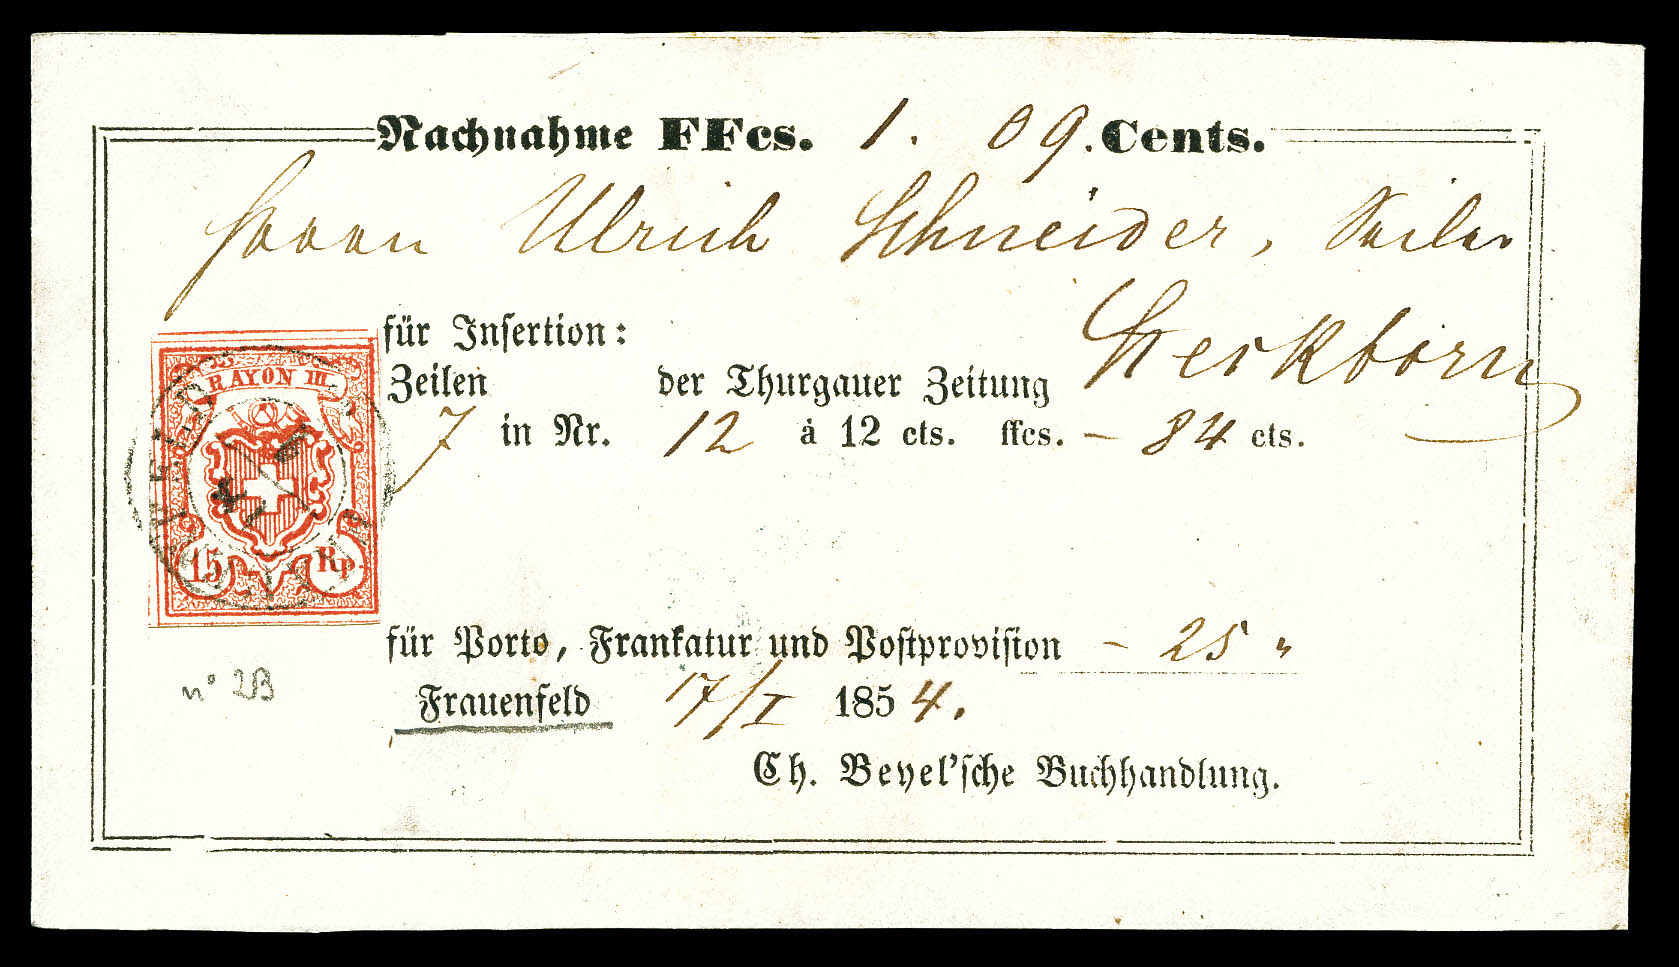 Nachnahme FFcs. 1. 09. Cents.
Herrn Ulrich Schneider, Seiler
Steckborn
für Insertion:
Zeilen der Thurgauer Zeitung
7 in Nr. 12 à 12 cts. ffcs. – 84 cts.
RAYON III.
15 Rp.
für Porto, Frankatur und Postprovision – 25 "
Frauenfeld 17/I 1854.
Ch. Beyel'sche Buchhandlung.
n° 2B